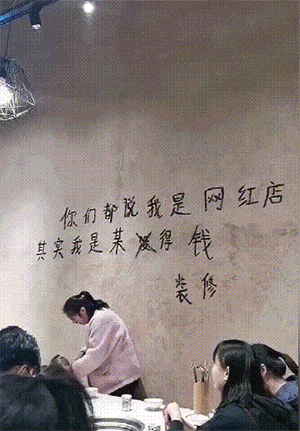 你们都说我是网红店
其实我是某得钱
装修